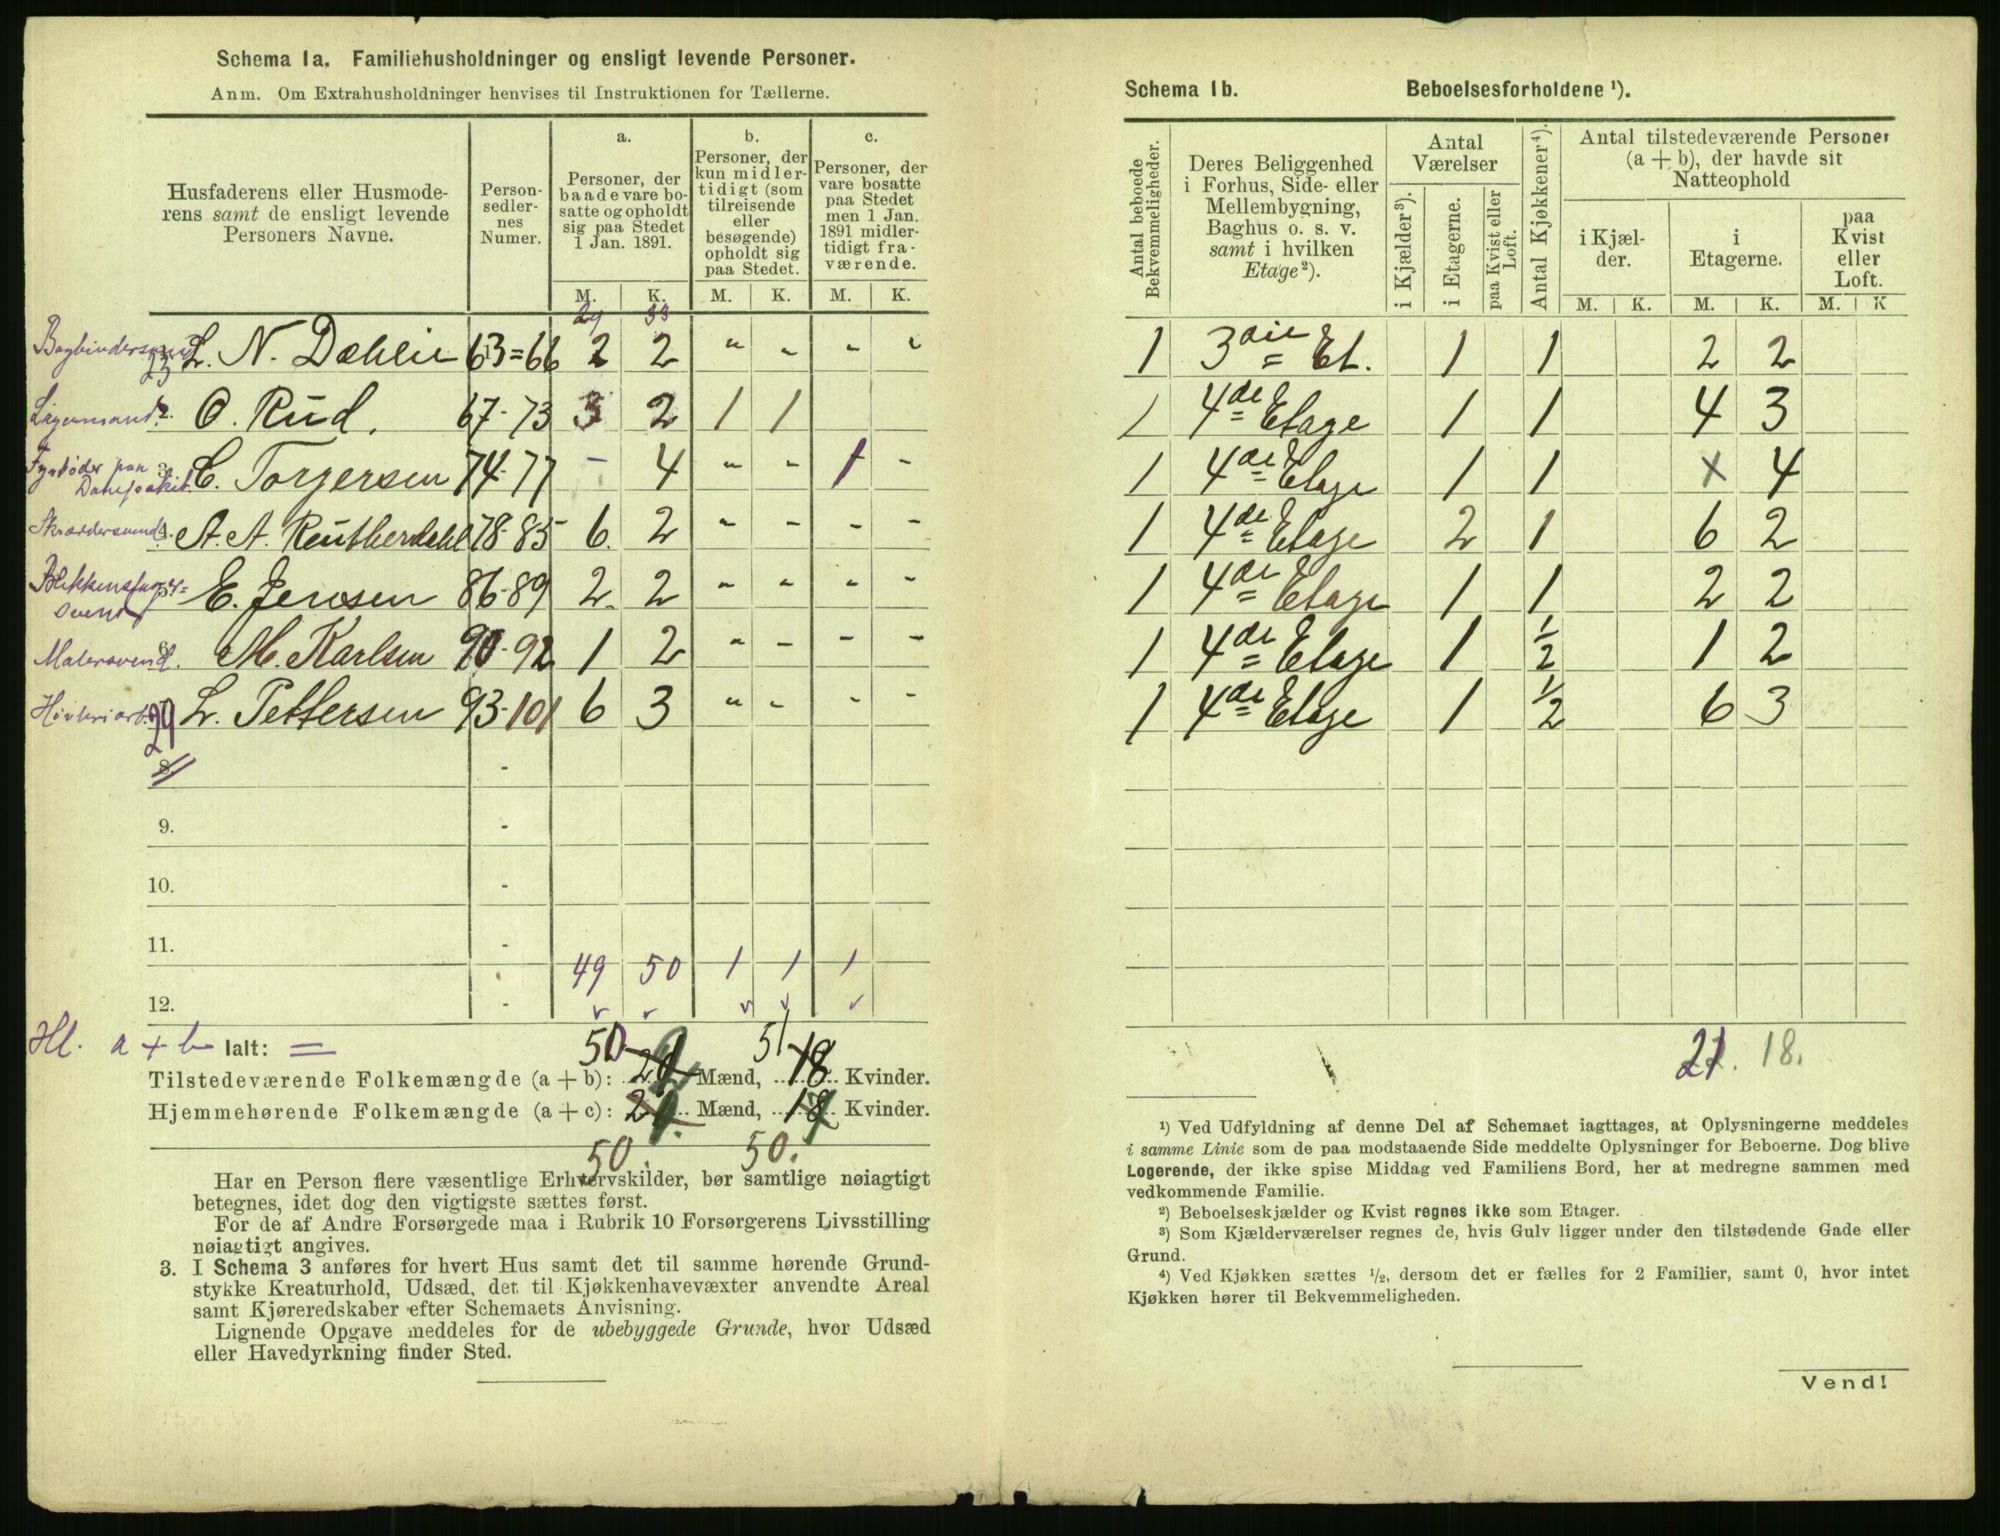 Schema 1a. Familiehusholdninger og ensligt levende Personer.
Anm. Om Extrahusholdninger henvises til Instruktionen for Tællerne.
Husfaderens eller Husmode-
rens samt de ensligt levende
Personers Navne.
Person-
sedler-
nes
Numer.
a.
Personer, der
baade vare bo-
satte og opholdt
sig paa Stedet
1 Jan. 1891.
b.
Personer, der
kun midler-
tidigt (som
tilreisende
eller
besøgende)
opholdt sig
paa Stedet.
c.
Personer, der
vare bosatte
paa Stedet
men 1 Jan.
1891 midler-
tidigt fra-
værende.
M. K. M. K. M. K.
29 33
L. N. Dæhlie 63=66 2 2 " " " "
Lagermand 2. O. Rud. 67-73 3 2 1 1
Fyrbøder paa 3. C. Torgersen 74-77 - 4 " " 1 -
Skræddersvend A. A. Reutherdahl 78-85 6. 2 " " " "
E. Jensen 86-89 2. 2 " " " "
svend
Malersvend. 6. M. Karlsen 90-92 1 2 " " " "
L. Pettersen 93-101 6 3 " " " "
29
8.
9. -
10. -
11. -
49 50 1 1 1
12. -
Hl. a + b Ialt: =
50 51
Tilstedeværende Folkemængde (a + b): Mænd, 18 Kvinder.
Hjemmehørende Folkemængde (a + c): Mænd, 18 Kvinder.
50. 50.
Har en Person flere væsentlige Erhvervskilder, bør samtlige nøiagtigt
betegnes, idet dog den vigtigste sættes først.
For de af Andre Forsørgede maa i Rubrik 10 Forsørgerens Livsstilling
nøiagtigt angives.
3. I Schema 3 anføres for hvert Hus samt det til samme hørende Grund-
stykke Kreaturhold, Udsæd, det til Kjøkkenhavevæxter anvendte Areal
samt Kjøreredskaber efter Schemaets Anvisning.
Lignende Opgave meddeles for de ubebyggede Grunde, hvor Udsæd
eller Havedyrkning finder Sted.
Schema 1b. Beboelsesforholdene ¹).
Antal beboede
Bekvemmeligheder.
Deres Beliggenhed
i Forhus, Side- eller
Mellembygning,
Baghus o. s. v.
samt i hvilken
Etage ²).
Antal
Værelser
i Kjælder ³).
i Etagerne.
paa Kvist eller
Loft.
Antal Kjøkkener ⁴).
Antal tilstedeværende Personer
(a + b), der havde sit
Natteophold
i Kjæl-
der.
i
Etagerne.
paa
Kvist
eller
Loft.
M. K. M. K. M. K
1 3die Et. 1 1 2 2
1 4de Etage 1 1 4 3
1 4de Etage 1 1 x 4
1 4de Etage 2 1 6 2
1 4de Etage 1 1 2 2
1 4de Etage 1 ½ 1 2
1 4de Etage 1 ½ 6 3
21. 18.
¹) Ved Udfyldning af denne Del af Schemaet iagttages, at Oplysningerne meddeles
i samme Linie som de paa modstaaende Side meddelte Oplysninger for Beboerne. Dog blive
Logerende, der ikke spise Middag ved Familiens Bord, her at medregne sammen med
vedkommende Familie.
²) Beboelseskjælder og Kvist regnes ikke som Etager.
³) Som Kjælderværelser regnes de, hvis Gulv ligger under den tilstødende Gade eller
Grund.
⁴) Ved Kjøkken sættes ½, dersom det er fælles for 2 Familier, samt 0, hvor intet
Kjøkken hører til Bekvemmeligheden.
Vend!